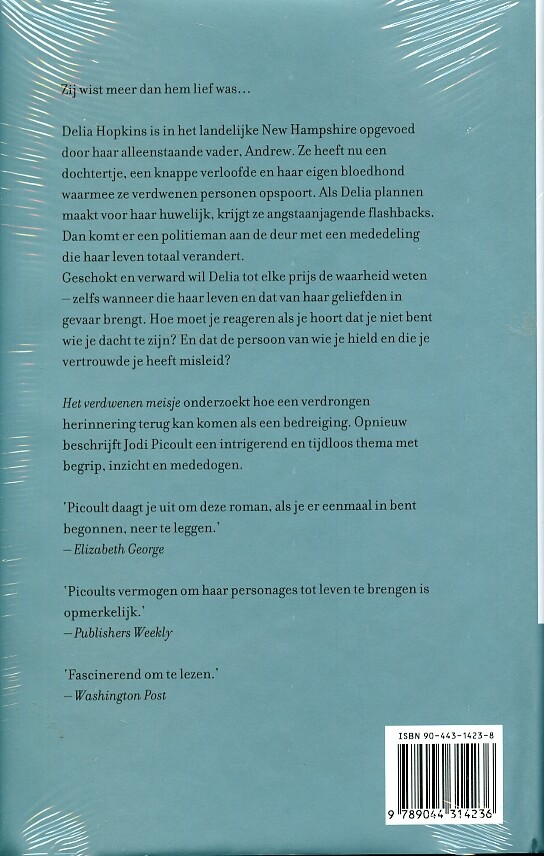 Zij wist meer dan hem lief was...
Delia Hopkins is in het landelijke New Hampshire opgevoed
door haar alleenstaande vader, Andrew. Ze heeft nu een
dochtertje, een knappe verloofde en haar eigen bloedhond
waarmee ze verdwenen personen opspoort. Als Delia plannen
maakt voor haar huwelijk, krijgt ze angstaanjagende flashbacks.
Dan komt er een politieman aan de deur met een mededeling
die haar leven totaal verandert.
Geschokt en verward wil Delia tot elke prijs de waarheid weten
– zelfs wanneer die haar leven en dat van haar geliefden in
gevaar brengt. Hoe moet je reageren als je hoort dat je niet bent
wie je dacht te zijn? En dat de persoon van wie je hield en die je
vertrouwde je heeft misleid?
Het verdwenen meisje onderzoekt hoe een verdrongen
herinnering terug kan komen als een bedreiging. Opnieuw
beschrijft Jodi Picoult een intrigerend en tijdloos thema met
begrip, inzicht en mededogen.
'Picoult daagt je uit om deze roman, als je er eenmaal in bent
begonnen, neer te leggen.'
– Elizabeth George
'Picoults vermogen om haar personages tot leven te brengen is
opmerkelijk.'
– Publishers Weekly
'Fascinerend om te lezen.'
– Washington Post
ISBN 90-443-1423-8
9 789044 314236